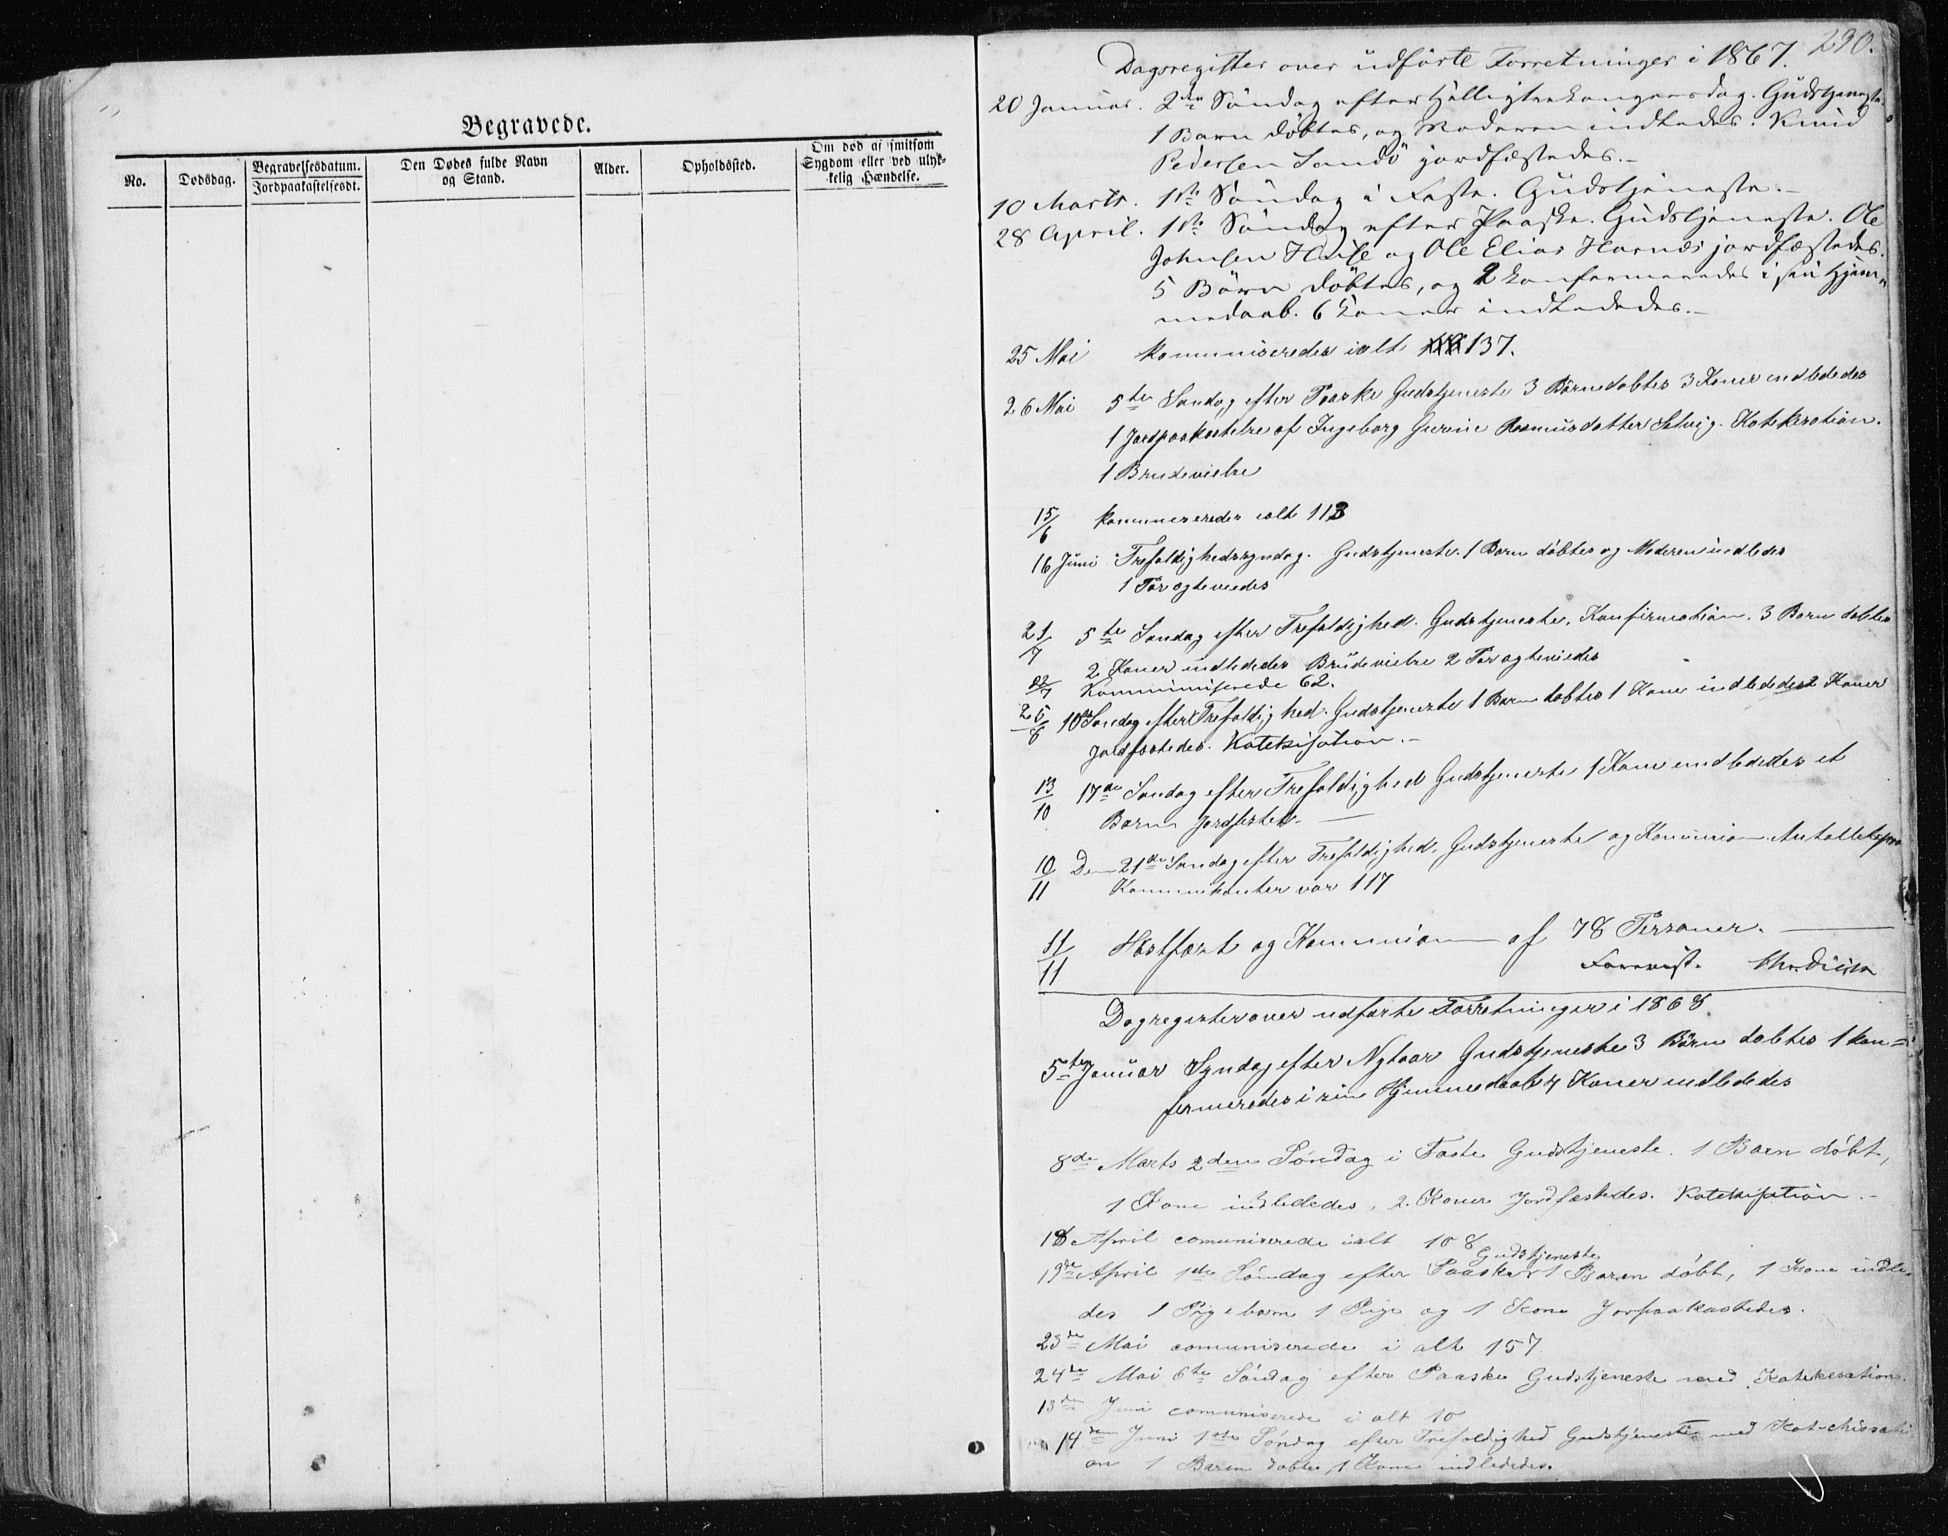 Begravede.
No.
Dødsdag.
Begravelsesdatum.
Jordpaakastelsesdt.
Den Dødes fulde Navn
og Stand.
Alder.
Opholdssted.
Om død af smitsom
Sygdom eller ved ulyk-
kelig Hændelse.
290.
Dagsregister over udførte Forretninger i 1867.
20 Januar. 2den Søndag efter Helligtrekongersdag. Gudstjeneste.
1 Barn døbtes, og Moderen indledes. Knud
Pedersen Sandö jordfæstedes.-
10 Marts. 1ste Søndag i Faste. Gudstjeneste.-
28 April. 1ste Søndag efter Paaske. Gudstjeneste. Ole
Johnsen og Ole Elias jordfæstedes.
5 Børn døbtes, og 2 konfirmeredes i sin Hjem-
medaab. 6 Koner indlededes.-
25 Mai kommuniceredes ialt 137.
26 Mai 5te Søndag efter Paaske Gudstjeneste 3 Børn døbtes 3 Koner indlededes
1 Jordpaakastelse af Ingeborg Gurine Rasmusdatter Selvig. Katekesation.
1 Brudevielse
15/6 kommuniseredes ialt 113
16 Juni Trefoldighedssyndag. Gudstjeneste. 1 Barn døbtes og Moderen indledes
1 Par egteviedes
21/7 5te Søndag efter Trefoldighed. Gudstjeneste, Konfirmation. 3 Børn døbtes
2 Koner indlededes Brudevielse 2 Par egteviedes
22/7 Kommuniserede 62.
25/8 10de Søndag efter Trefoldighed. Gudstjeneste 1 Barn døbtes 1 Kone indlededes 2 Koner
Jordfæstedes. Katekisation.-
13/10 17de Søndag efter Trefoldighed Gudstjeneste 1 Kone indlededes et
Barn Jordfæstet.
10/11 Den 21de Søndag efter Trefoldighed. Gudstjeneste og Kommunion Antallet paa
Kommunikanter var 117
11/11 Høstfast og Kommunion af 78 Personer.
Forevist.
Dagregister over udførte Forretninger i 1868.
5te Januar Syndag efter Nytaar Gudstjeneste 3 Børn døbtes 1 kon-
firmeredes i sin Hjemmedaab 4 Koner indlededes
8de Marts 2den Søndag i Faste Gudstjeneste. 1 Barn døbt,
1 Kone indlededes, 2 Koner Jordfæstedes. Katekisation.-
18 April comuniserede ialt 108
19de April 1ste Søndag efter Paaske Gudstjeneste 1 Barn døbt, 1 Kone indle-
des 1 Pigebarn 1 Pige og 1 Kone Jorpaakastedes.
23de Mai comuniserede i alt 157
24de Mai 6te Søndag efter Paaske Gudstjeneste med Katekesation.
13den Juni comuniserede i alt 10
14den Juni 1ste Søndag efter Trefoldighed Gudstjeneste med Katechissati
on 1 Barn døbtes, 1 Kone indlededes.